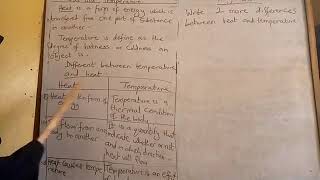 Heat is a form of energy which is
transport from one part of substance
to another.
Temperature is define as the
degree of hotness or coldness an
object is.
Different between temperature
and heat
Heat Temperature
Heat form of Temperature is a
thermal condition
of the body
flow from It is a quantity that
to another indicate whether or not
and in which direction
heat will flow
Heat causes Temperature is an
Write more differences
between heat and temperature